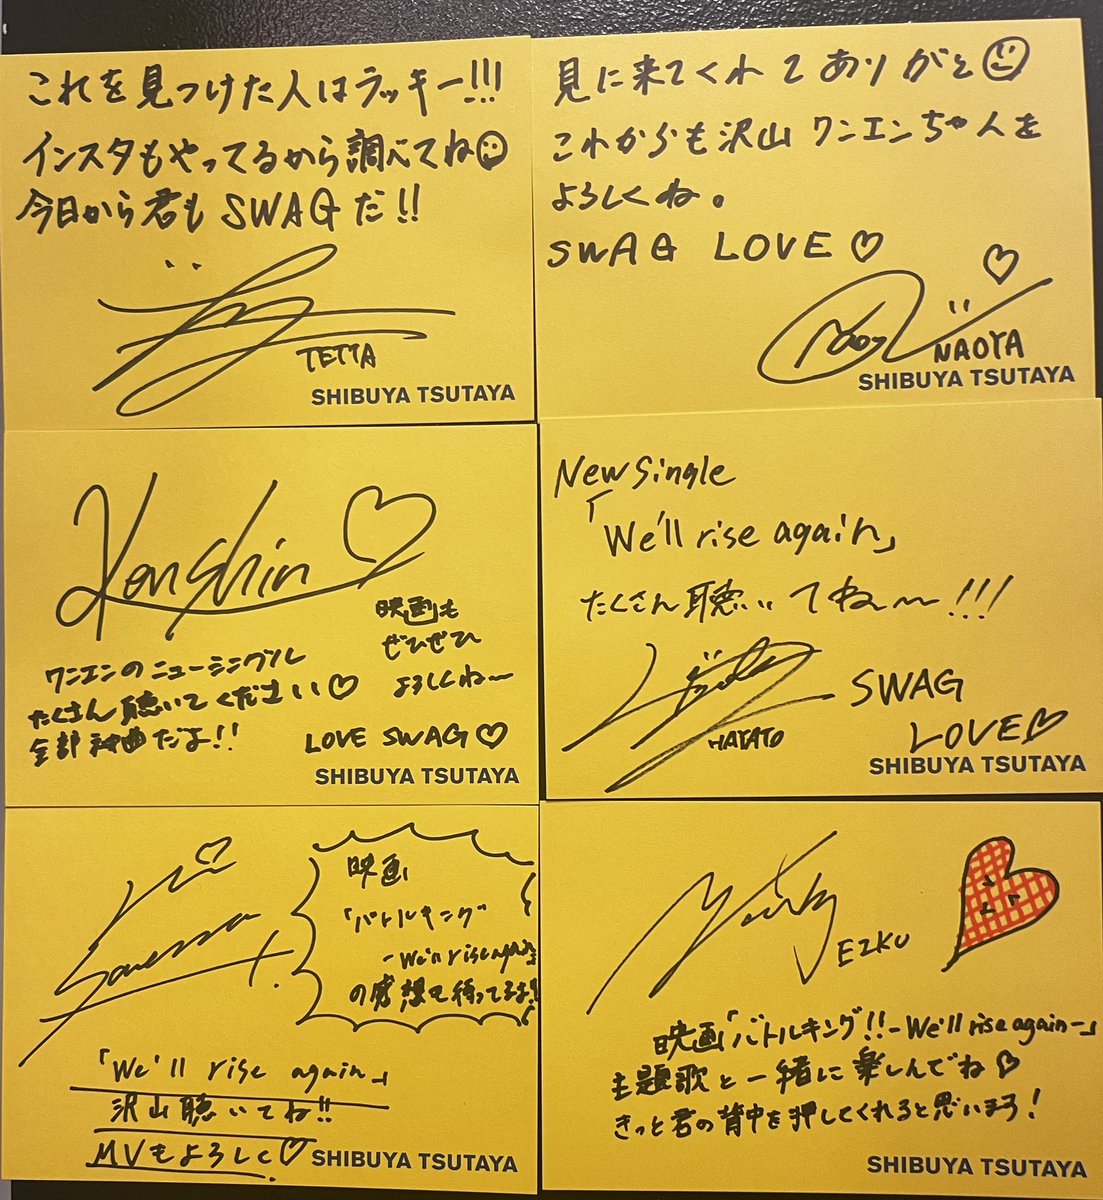 これを見つけた人はラッキー!!!
インスタもやってるから調べてね
今日から君もSWAGだ!!
TETTA
SHIBUYA TSUTAYA
見に来てくれてありがと
これからも沢山ワンエンちゃんを
よろしくね。
SWAG LOVE♡
NAOYA
SHIBUYA TSUTAYA
Kenshin♡
映画も
ぜひぜひ
よろしくね〜
ワンエンのニューシングル
たくさん聴いてください♡
全部神曲だよ!!
LOVE SWAG♡
SHIBUYA TSUTAYA
New Single
「We'll rise again」
たくさん聴いてね〜!!!
HAYATO
SWAG
LOVE♡
SHIBUYA TSUTAYA
映画
「バトルキング
-We'll rise again
の感想も待ってるよ!
「We'll rise again」
沢山聴いてね!!
MVもよろしく♡
SHIBUYA TSUTAYA
EZKU
映画「バトルキング!!-We'll rise again-」
主題歌と一緒に楽しんでね♡
きっと君の背中を押してくれると思います!
SHIBUYA TSUTAYA